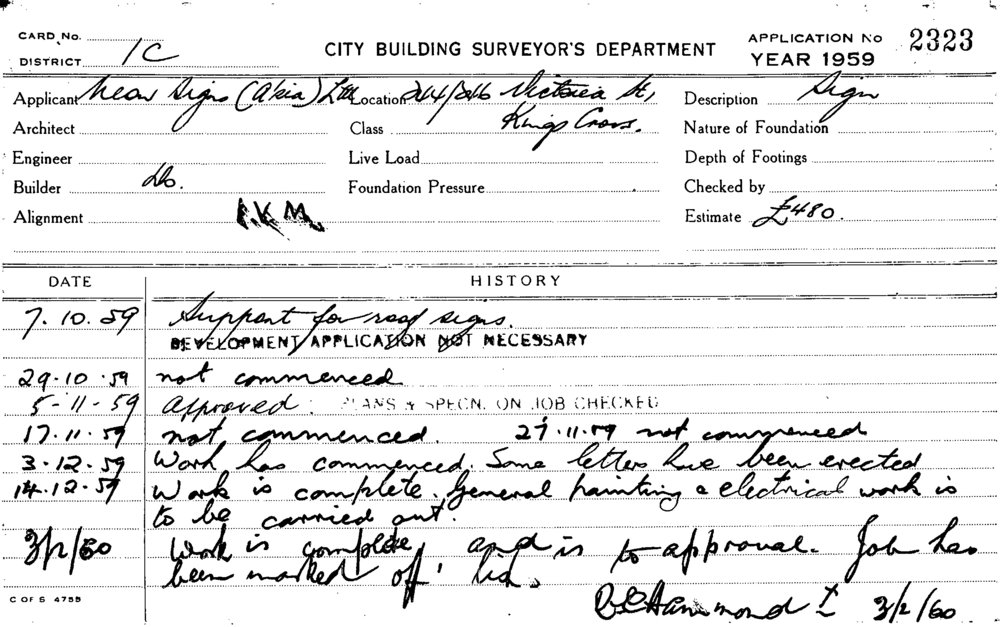 CARD No.
DISTRICT 1C
CITY BUILDING SURVEYOR'S DEPARTMENT
APPLICATION No 2323
YEAR 1959
Applicant Neon Signs (A'sia) Ltd Location 244/246 Victoria St, Description Sign
Architect Class Kings Cross. Nature of Foundation
Engineer Live Load Depth of Footings
Builder Do. Foundation Pressure Checked by
Alignment Estimate £480.
DATE HISTORY
7.10.59 Support for roof signs.
DEVELOPMENT APPLICATION NOT NECESSARY
29.10.59 not commenced
5-11-59 Approved. PLANS & SPECN. ON JOB CHECKED
17.11.59 not commenced. 27.11.59 not commenced
3.12.59 Work has commenced. Some letters have been erected
14.12.59 Work is complete. General painting & electrical work is
to be carried out.
3/2/60 Work is complete, and is to approval. Job has
been marked off
Hammond 3/2/60
C OF S 4755